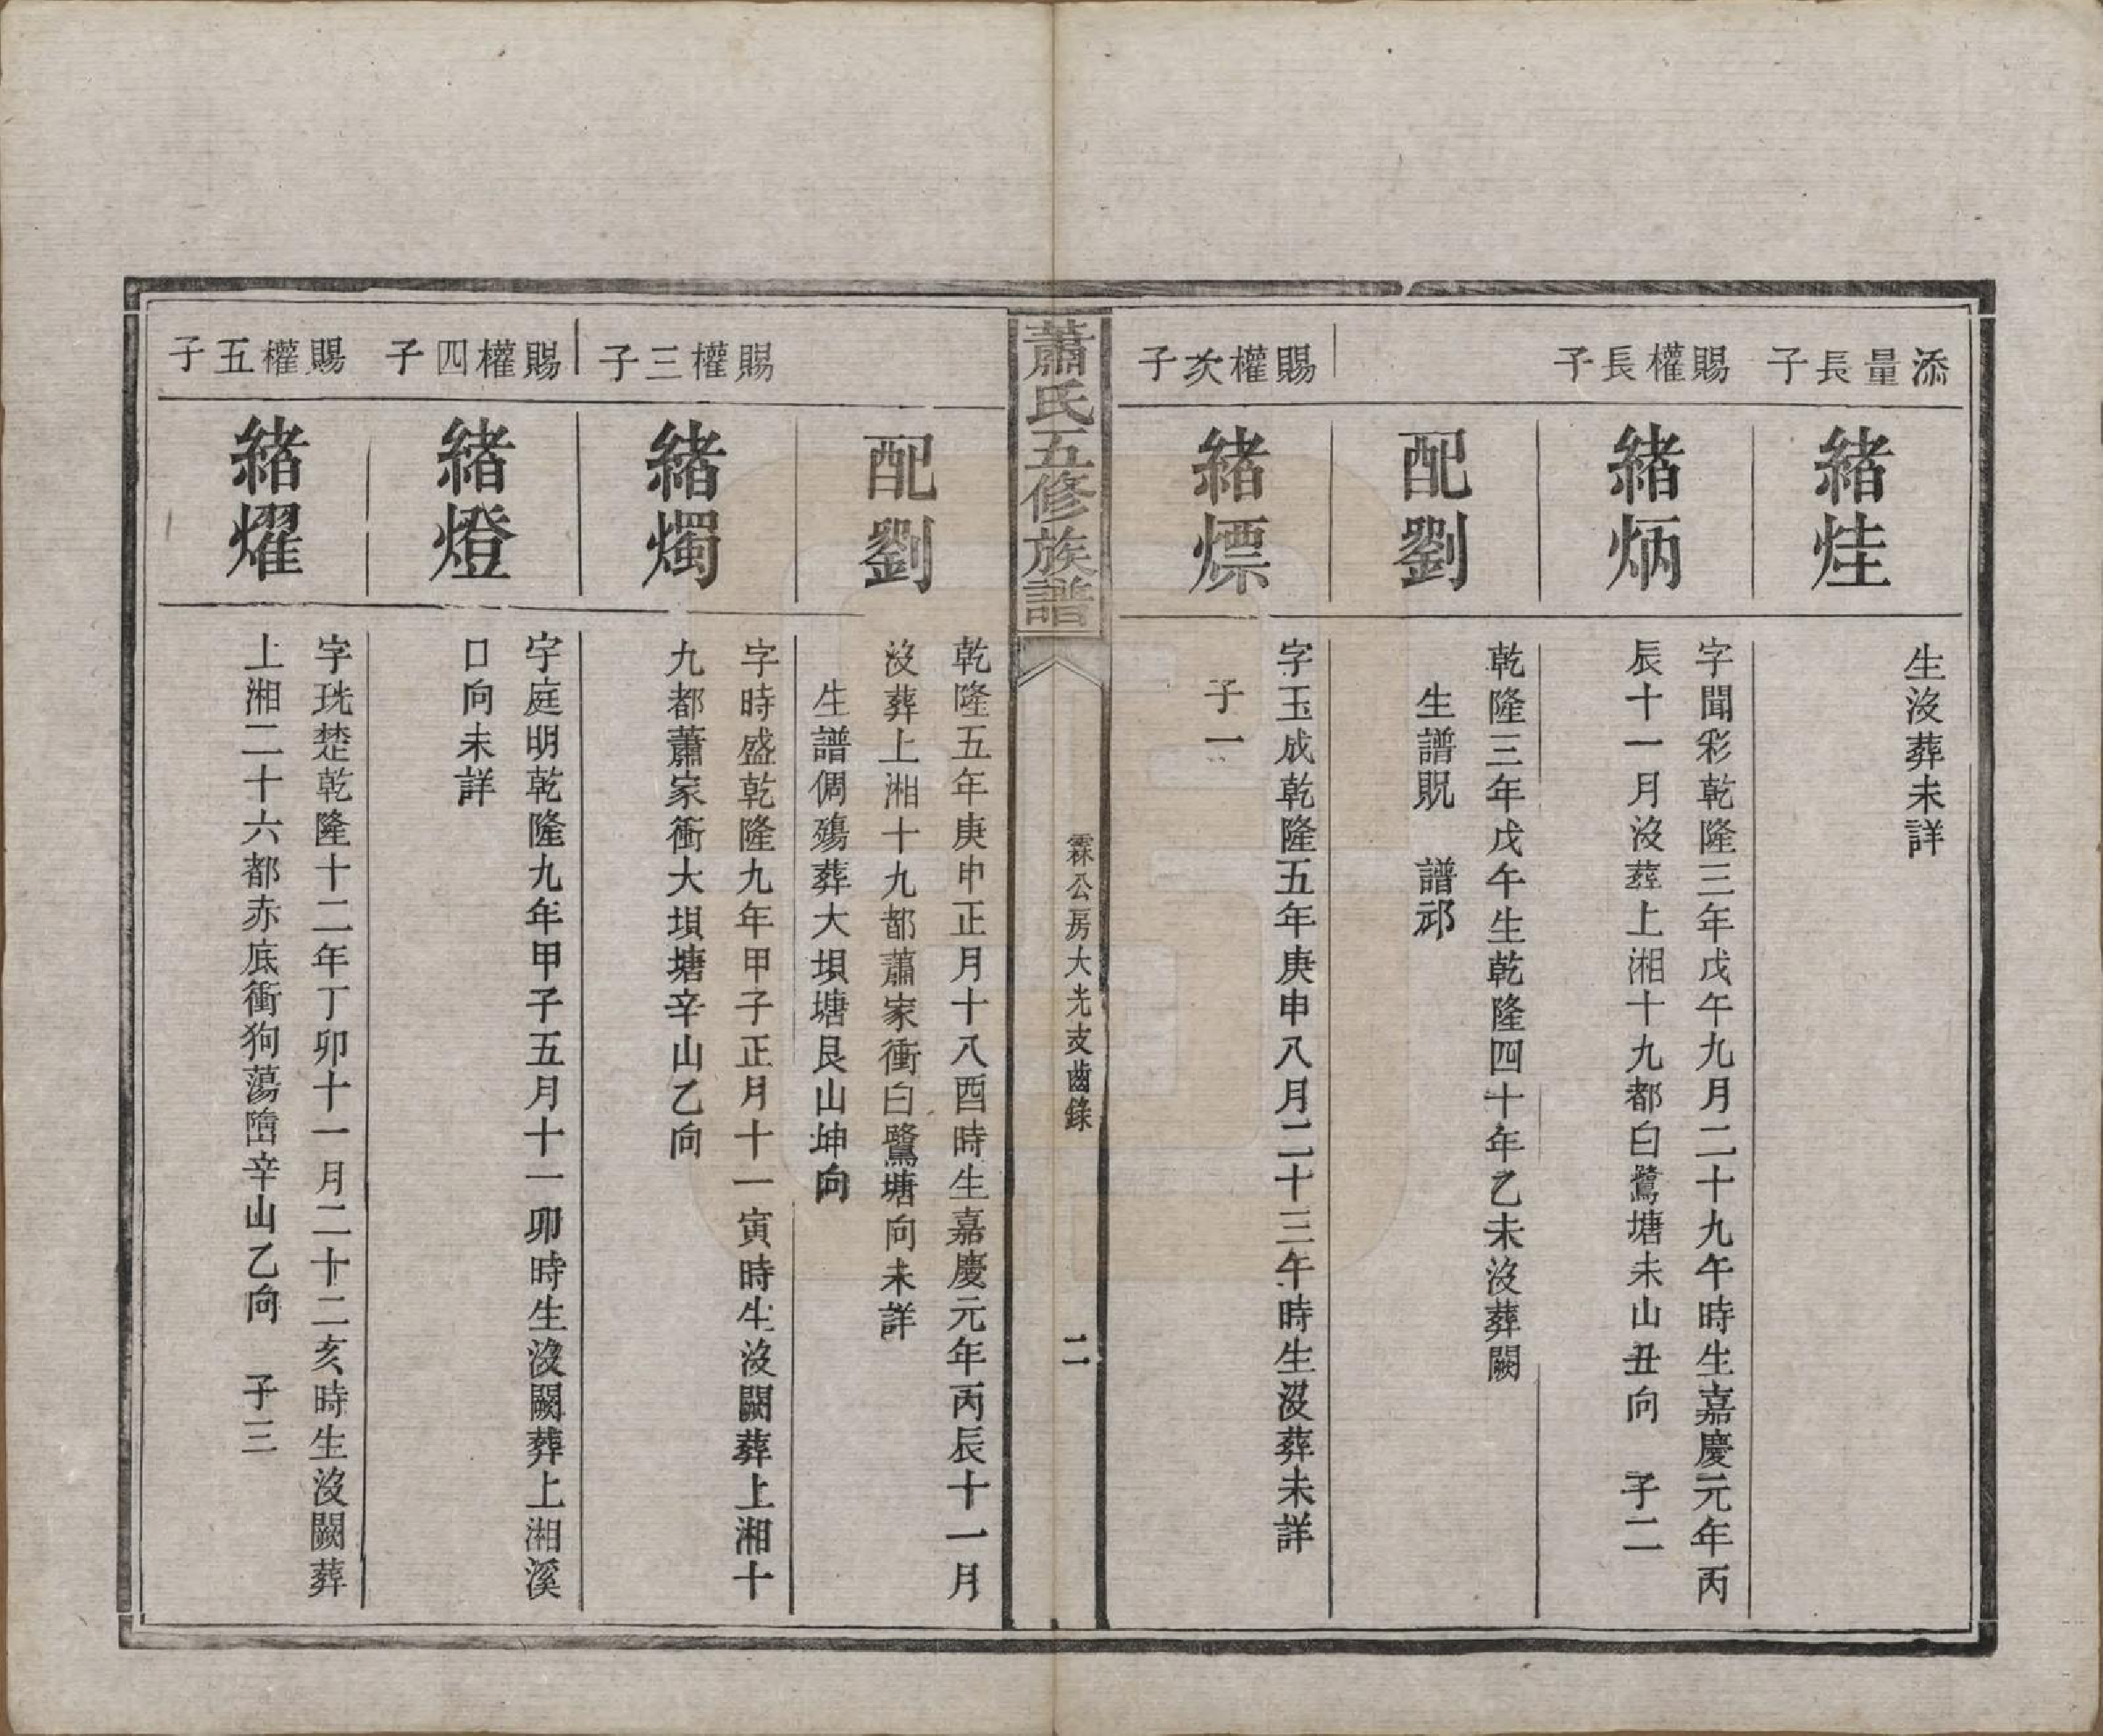 添量長子
緒烓
生沒葬未詳
賜權長子
緒炳
字聞彩乾隆三年戊午九月二十九午時生嘉慶元年丙
辰十一月沒葬上湘十九都白鷺塘未山丑向　子二
配劉
乾隆三年戊午生乾隆四十年乙未沒葬闕
生譜貺　譜祁
賜權次子
緒熛
字玉成乾隆五年庚申八月二十三午時生沒葬未詳
子一
蕭氏五修族譜
霖公房大光支齒錄
二
配劉
乾隆五年庚申正月十八酉時生嘉慶元年丙辰十一月
沒葬上湘十九都蕭家衝白鷺塘向未詳
生譜倜殤葬大垻塘艮山坤向
賜權三子
緒燭
字時盛乾隆九年甲子正月十一寅時生沒闕葬上湘十
九都蕭家衝大垻塘辛山乙向
賜權四子
緒燈
字庭明乾隆九年甲子五月十一卯時生沒闕葬上湘溪
口向未詳
賜權五子
緒燿
字珖楚乾隆十二年丁卯十一月二十二亥時生沒闕葬
上湘二十六都赤底衝狗蕩㽏辛山乙向　子三